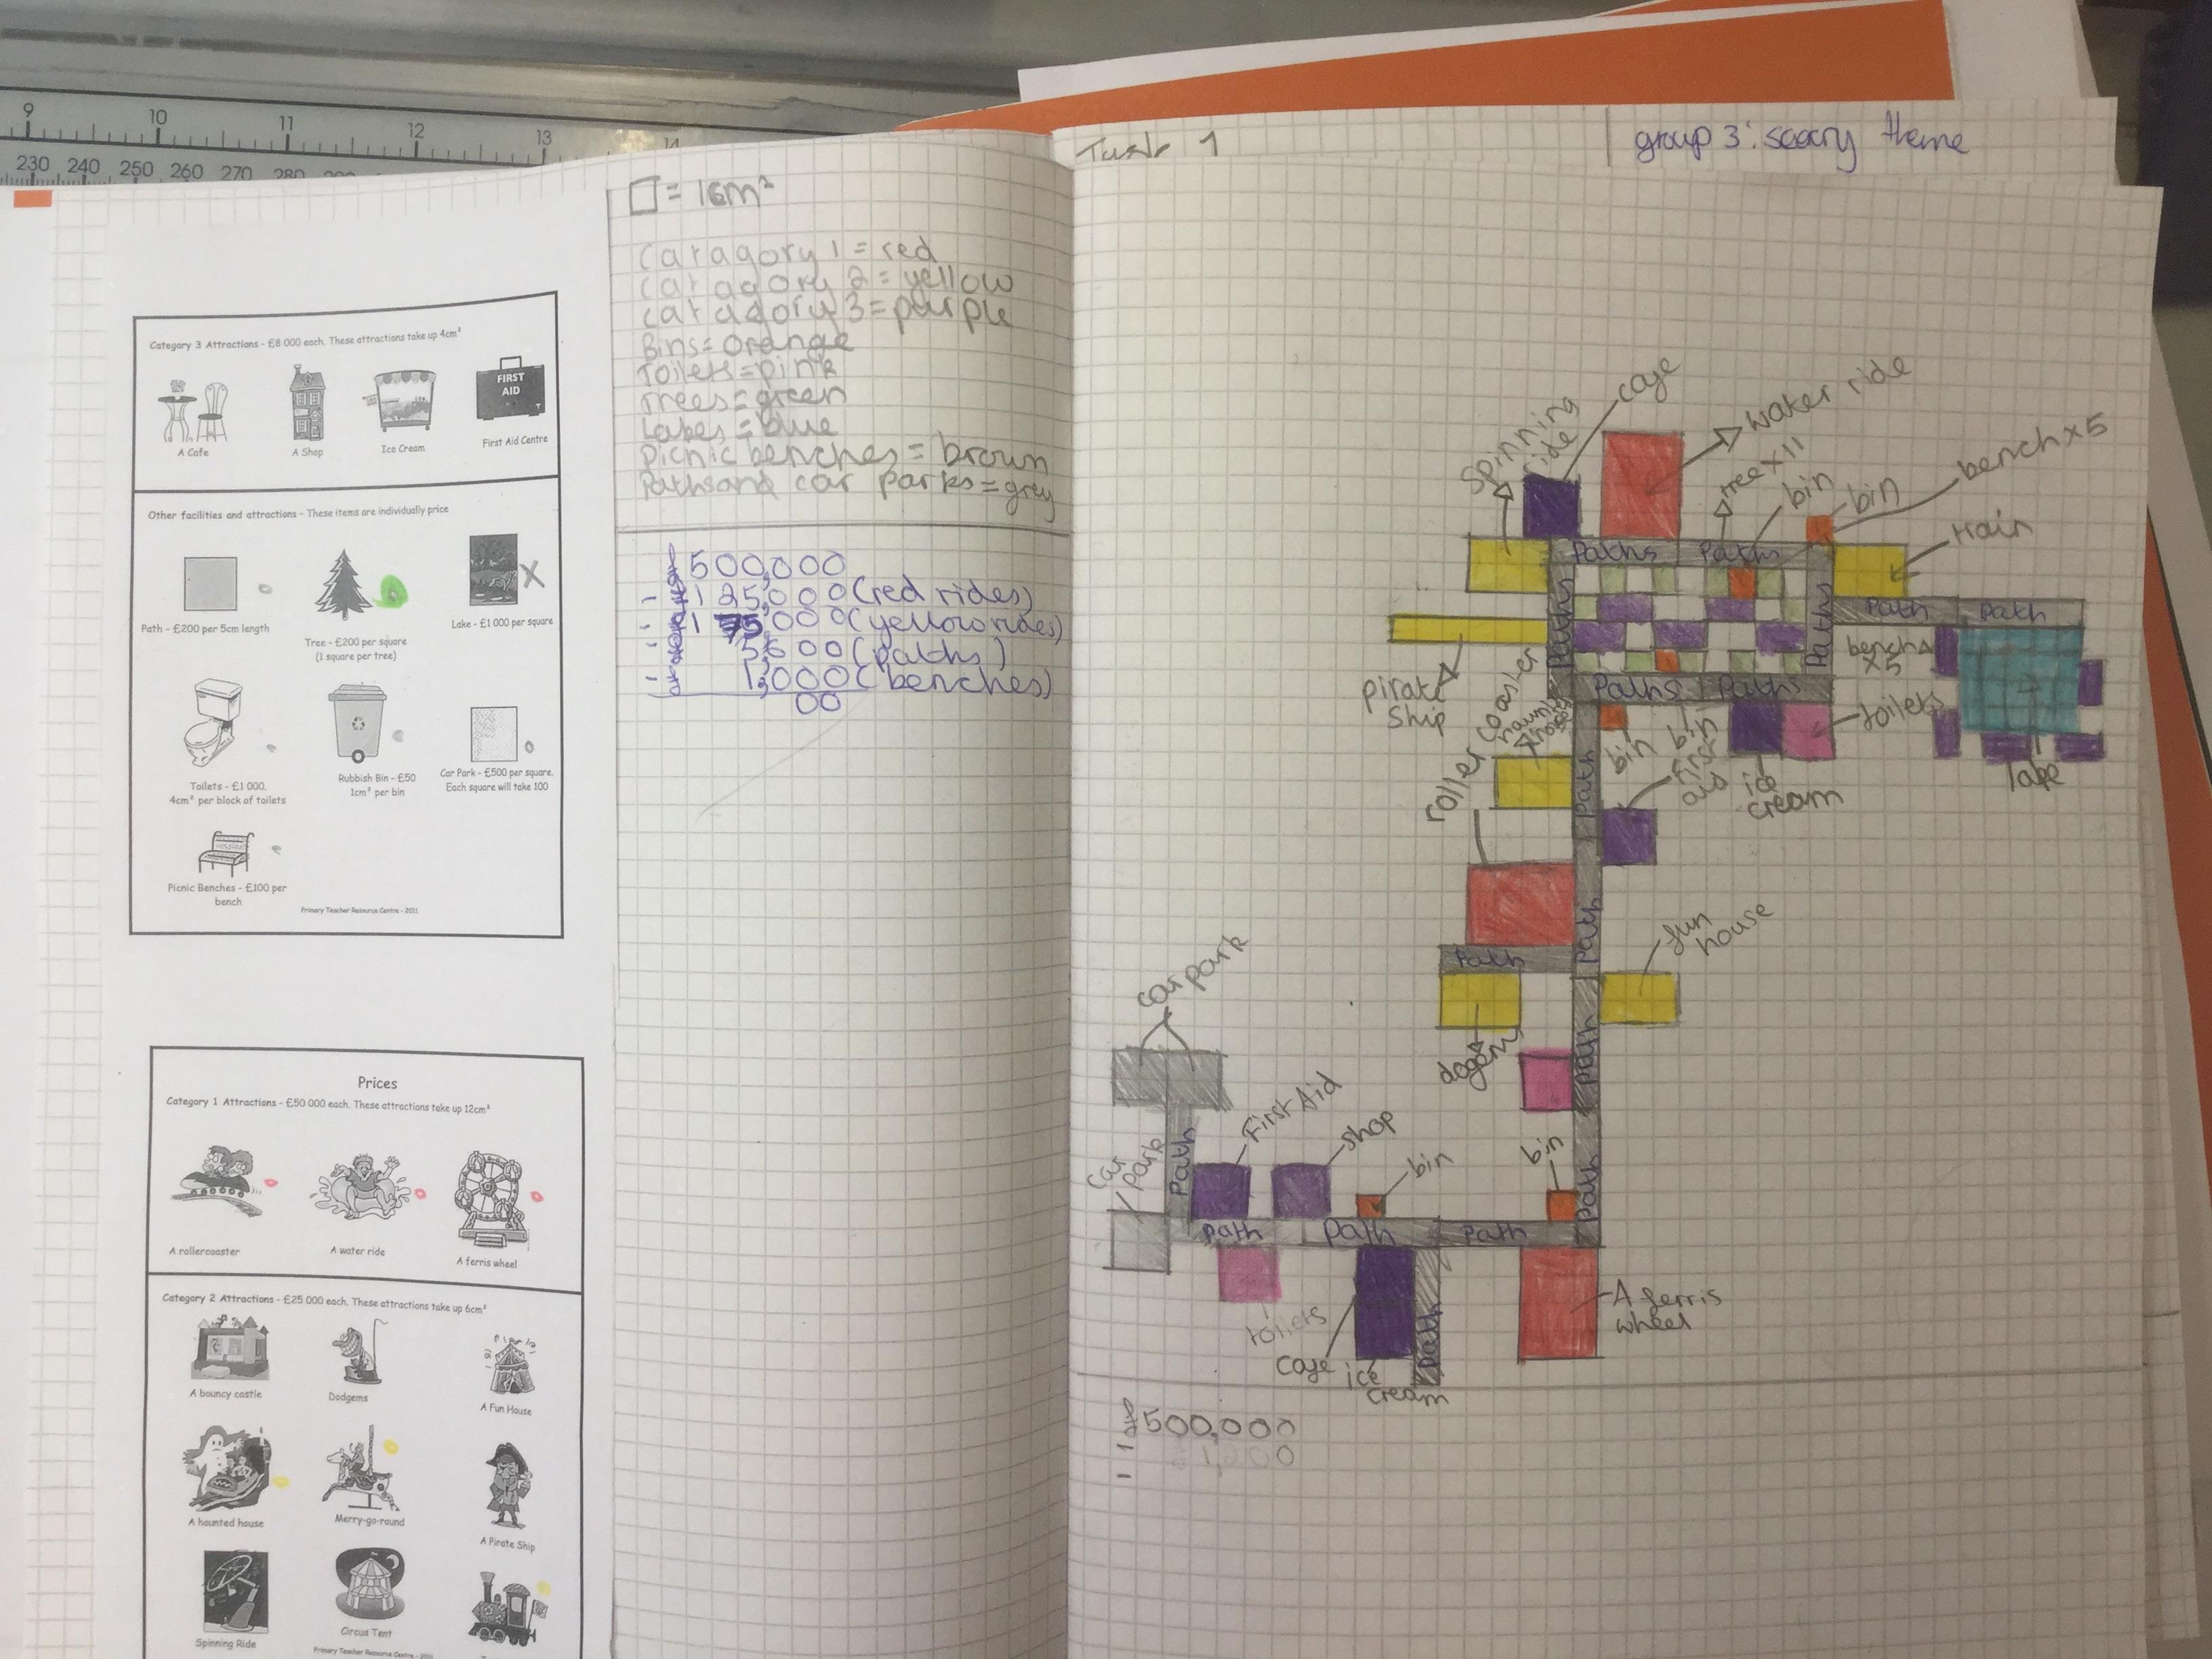 9 10 11 12 13 14
230 240 250 260 270 280
Category 3 Attractions - £8 000 each. These attractions take up 4cm²
FIRST
AID
A Cafe
A Shop
Ice Cream
First Aid Centre
Other facilities and attractions - These items are individually price
Path - £200 per 5cm length
Tree - £200 per square
(1 square per tree)
Lake - £1 000 per square
Toilets - £1 000.
4cm² per block of toilets
Rubbish Bin - £50
1cm² per bin
Car Park - £500 per square.
Each square will take 100
Picnic Benches - £100 per
bench
Primary Teacher Resource Centre - 2011
Prices
Category 1 Attractions - £50 000 each. These attractions take up 12cm²
A rollercoaster
A water ride
A ferris wheel
Category 2 Attractions - £25 000 each. These attractions take up 6cm²
A bouncy castle
Dodgems
A Fun House
A haunted house
Merry-go-round
A Pirate Ship
Spinning Ride
Circus Tent
Primary Teacher Resource Centre - 2011
□ = 1cm²
Caragory 1 = red
caragory 2 = yellow
caragory 3 = purple
Bins = orange
Toilets = pink
Trees = green
Lakes = blue
Picnic benches = brown
Paths and car parks = grey
£500,000
- 125,000 (red rides)
- 175,000 (yellow rides)
- 5,600 (paths)
- 1,000 (benches)
00
Task 1
group 3: scary theme
Spinning
ride
cafe
water ride
tree x 11
bin
bin
bench x 5
train
Paths
Paths
Paths
Paths
Path
Path
pirate
ship
bench
x5
lake
Paths
Paths
roller coaster
haunted
house
bin
bin
First
aid
ice
cream
toilets
Path
Path
Path
fun
house
dogems
Path
Path
car park
car
park
Path
First Aid
shop
bin
bin
Path
Path
Path
toilets
cafe
ice
cream
Path
A ferris
wheel
£500,000